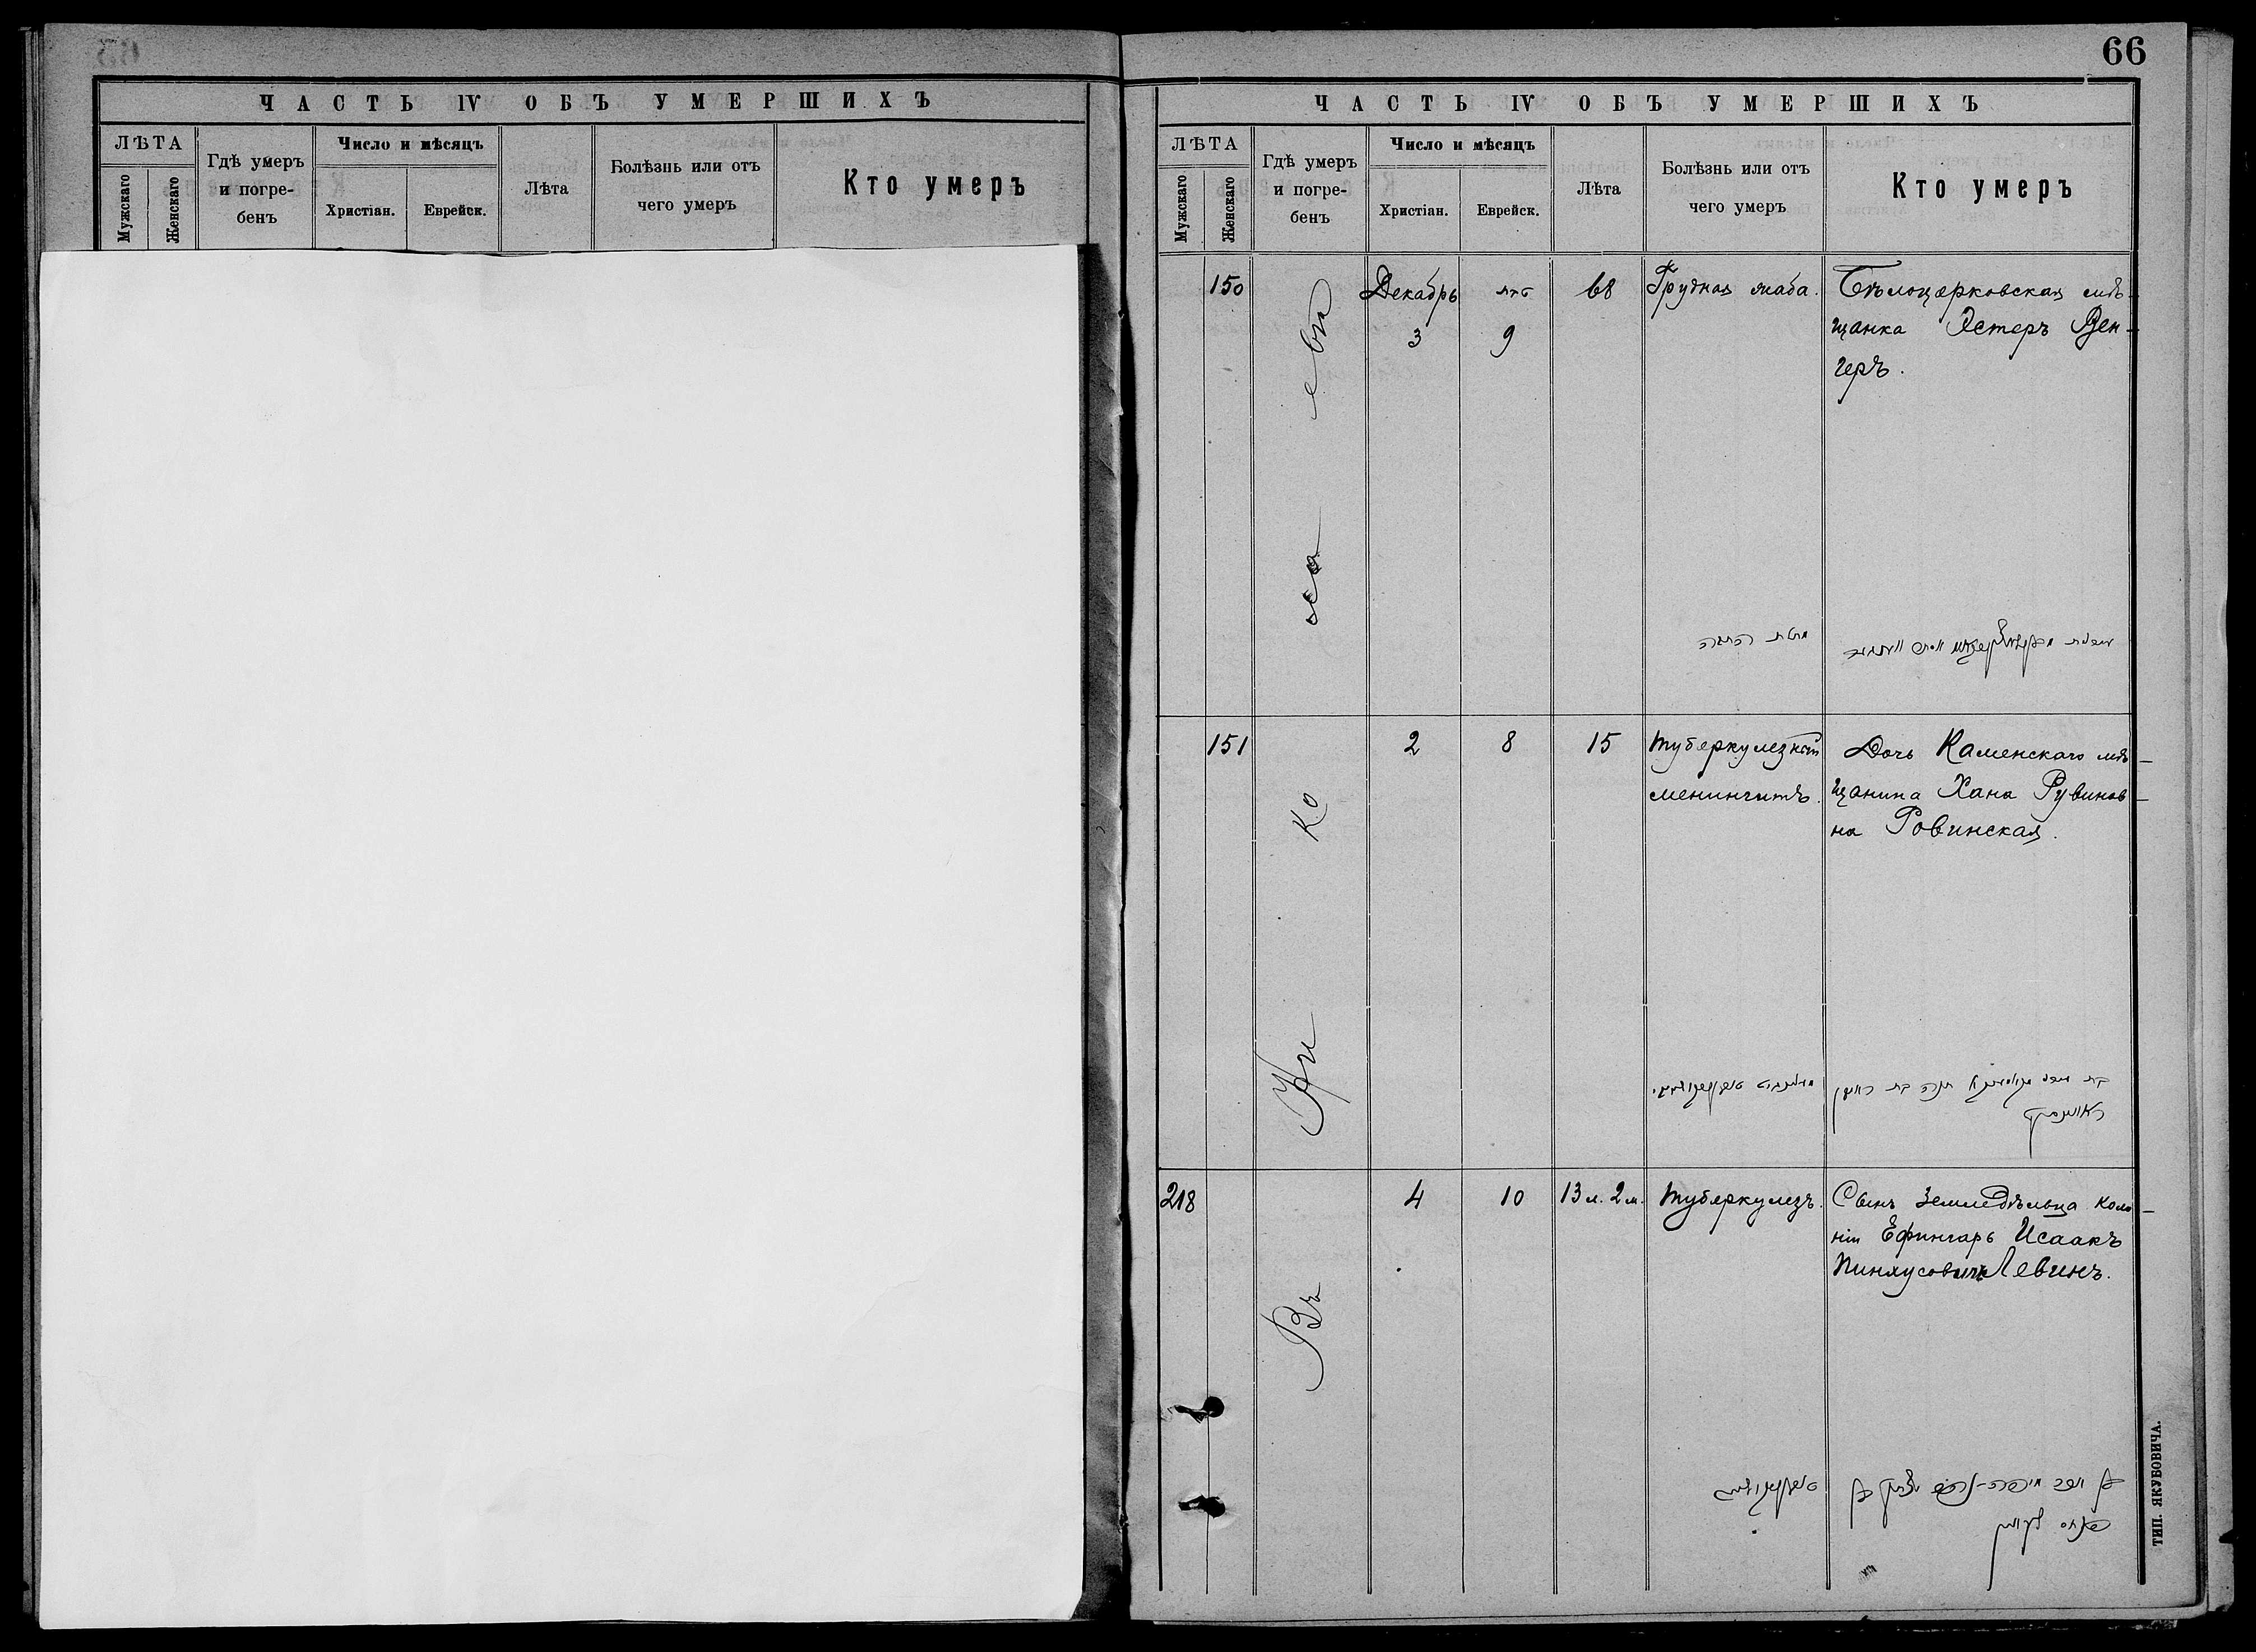 ЧАСТЬ IV ОБЪ УМЕРШИХЪ
ЛѢТА
Мужскаго
Женскаго
Гдѣ умеръ
и погре-
бенъ
Число и мѣсяцъ
Христіан.
Еврейск.
Лѣта
Болѣзнь или отъ
чего умеръ
Кто умеръ
66
ЧАСТЬ IV ОБЪ УМЕРШИХЪ
ЛѢТА
Мужскаго
Женскаго
Гдѣ умеръ
и погре-
бенъ
Число и мѣсяцъ
Христіан.
Еврейск.
Лѣта
Болѣзнь или отъ
чего умеръ
Кто умеръ
150
Декабрь
3
טבת
9
68
Грудная жаба.
Бѣлоцерковская мѣ-
щанка Эстеръ Вен-
геръ.
151
2
8
15
Туберкулезный
менингитъ.
Дочь Каменскаго мѣ-
щанина Хана Рувинов-
на Ровинская.
בת
חנה בת ראובן
218
4
10
13 л. 2 м.
Туберкулезъ.
Сынъ земледѣльца коло-
ніи Ефингарь Исаакъ
Пинхусовичъ Левинъ.
יצחק בן
פנחס לעווין
ТИП. ЯКУБОВИЧА.